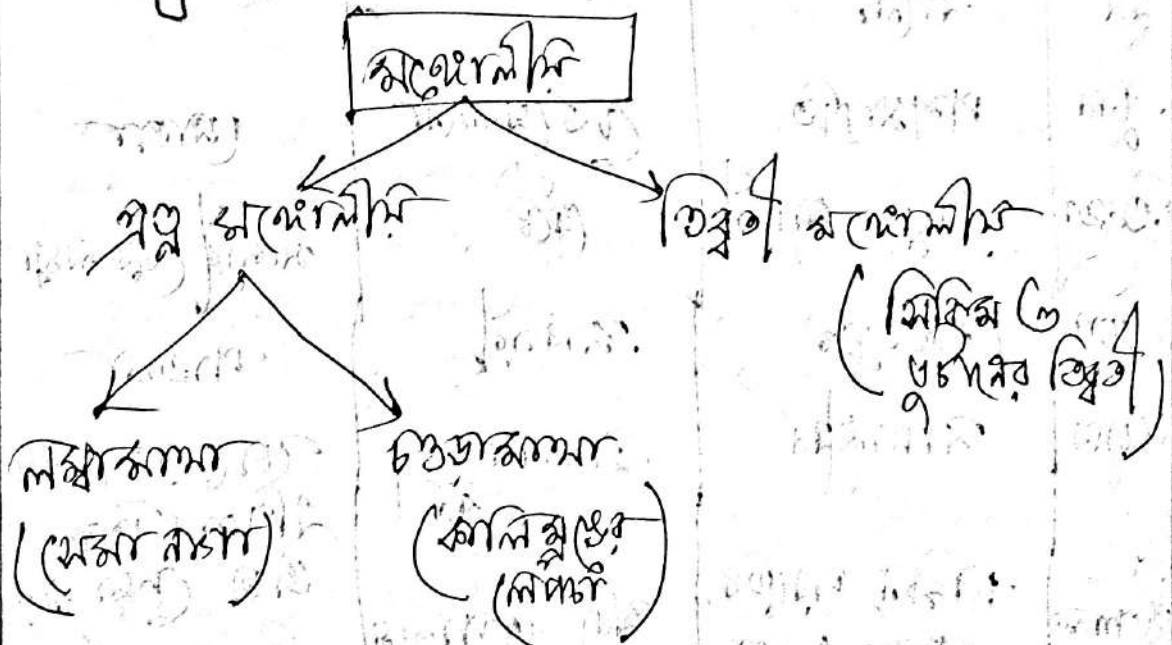 মঙ্গোলীয়
প্রত্ন মঙ্গোলীয়
তিব্বতী মঙ্গোলীয়
(সিকিম ও
ভুটানের তিব্বতী)
লম্বামাথা
(সেমা নাগা)
চওড়ামাথা
(কালিম্পঙের
লেপচা)